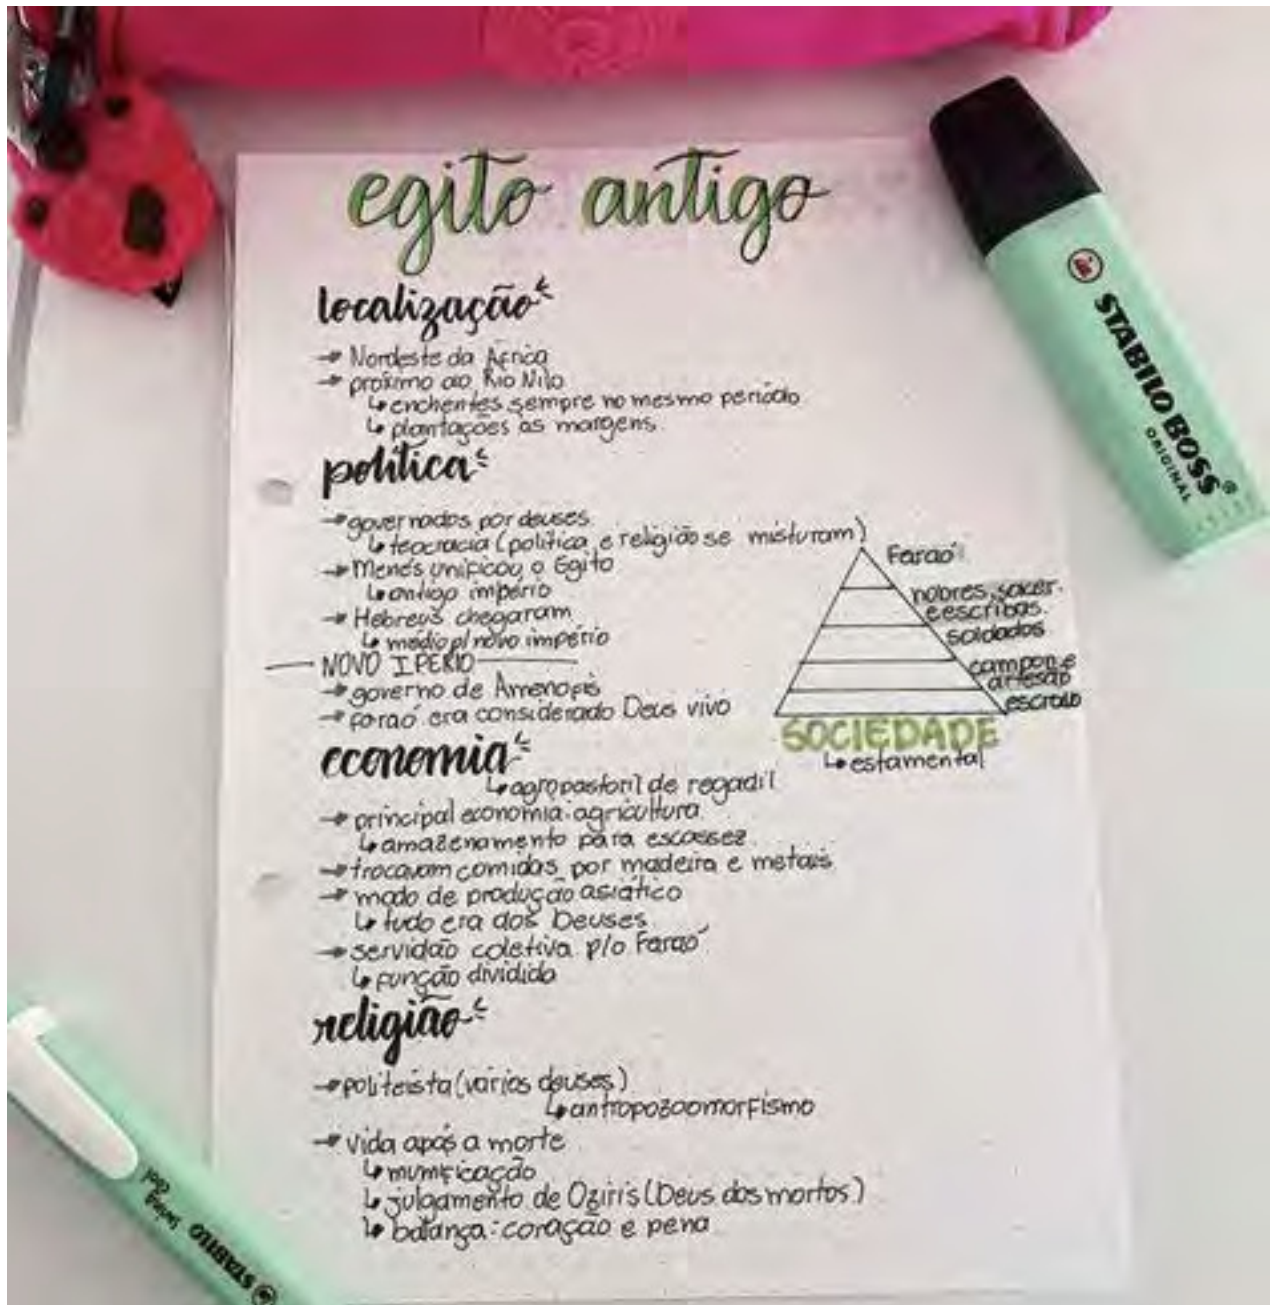 egito antigo
localização
→ Nordeste da África
→ próximo ao Rio Nilo
↳ enchentes sempre no mesmo período
↳ plantações às margens
política
→ governados por deuses
↳ teocracia (política e religião se misturam)
→ Menés unificou o Egito
↳ antigo império
→ Hebreus chegaram
↳ médio p/ novo império
NOVO IPÉRIO
→ governo de Amenofis
→ faraó era considerado Deus vivo
Faraó
nobres, sacer.
e escribas
soldados
campon e
artesão
escravo
SOCIEDADE
↳ estamental
economia
↳ agropastoril de regadil
→ principal economia: agricultura
↳ amazenamento para escassez
→ trocavam comidas por madeira e metais
→ modo de produção asiático
↳ tudo era dos Deuses
→ servidão coletiva p/o Faraó
↳ função dividida
religião
→ politeista (vários deuses)
↳ antropozoomorfismo
→ vida após a morte
↳ mumificação
↳ julgamento de Oziris (Deus dos mortos)
↳ balança: coração e pena
STABILO BOSS®
ORIGINAL
STABILO
swing cool